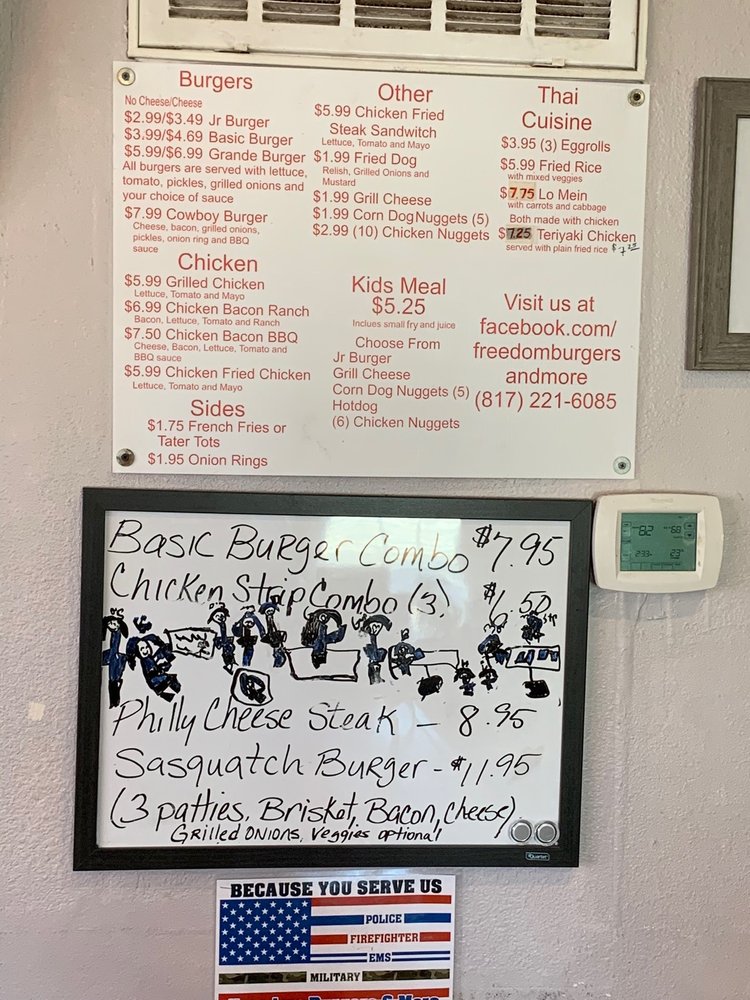 Burgers
No Cheese/Cheese
$2.99/$3.49 Jr Burger
$3.99/$4.69 Basic Burger
$5.99/$6.99 Grande Burger
All burgers are served with lettuce,
tomato, pickles, grilled onions and
your choice of sauce
$7.99 Cowboy Burger
Cheese, bacon, grilled onions,
pickles, onion ring and BBQ
sauce
Chicken
$5.99 Grilled Chicken
Lettuce, Tomato and Mayo
$6.99 Chicken Bacon Ranch
Bacon, Lettuce, Tomato and Ranch
$7.50 Chicken Bacon BBQ
Cheese, Bacon, Lettuce, Tomato and
BBQ sauce
$5.99 Chicken Fried Chicken
Lettuce, Tomato and Mayo
Sides
$1.75 French Fries or
Tater Tots
$1.95 Onion Rings
Other
$5.99 Chicken Fried
Steak Sandwitch
Lettuce, Tomato and Mayo
$1.99 Fried Dog
Relish, Grilled Onions and
Mustard
$1.99 Grill Cheese
$1.99 Corn Dog Nuggets (5)
$2.99 (10) Chicken Nuggets
Kids Meal
$5.25
Inclues small fry and juice
Choose From
Jr Burger
Grill Cheese
Corn Dog Nuggets (5)
Hotdog
(6) Chicken Nuggets
Thai
Cuisine
$3.95 (3) Eggrolls
$5.99 Fried Rice
with mixed veggies
$7.75 Lo Mein
with carrots and cabbage
Both made with chicken
$7.25 Teriyaki Chicken
served with plain fried rice
Visit us at
facebook.com/
freedomburgers
andmore
(817) 221-6085
Basic Burger Combo $7.95
Chicken Strip Combo (3)
Philly Cheese Steak - 8.95
Sasquatch Burger - $11.95
(3 patties, Brisket, Bacon, cheese)
Grilled Onions, Veggies optional
Quartet
Honeywell
BECAUSE YOU SERVE US
POLICE
FIREFIGHTER
EMS
MILITARY